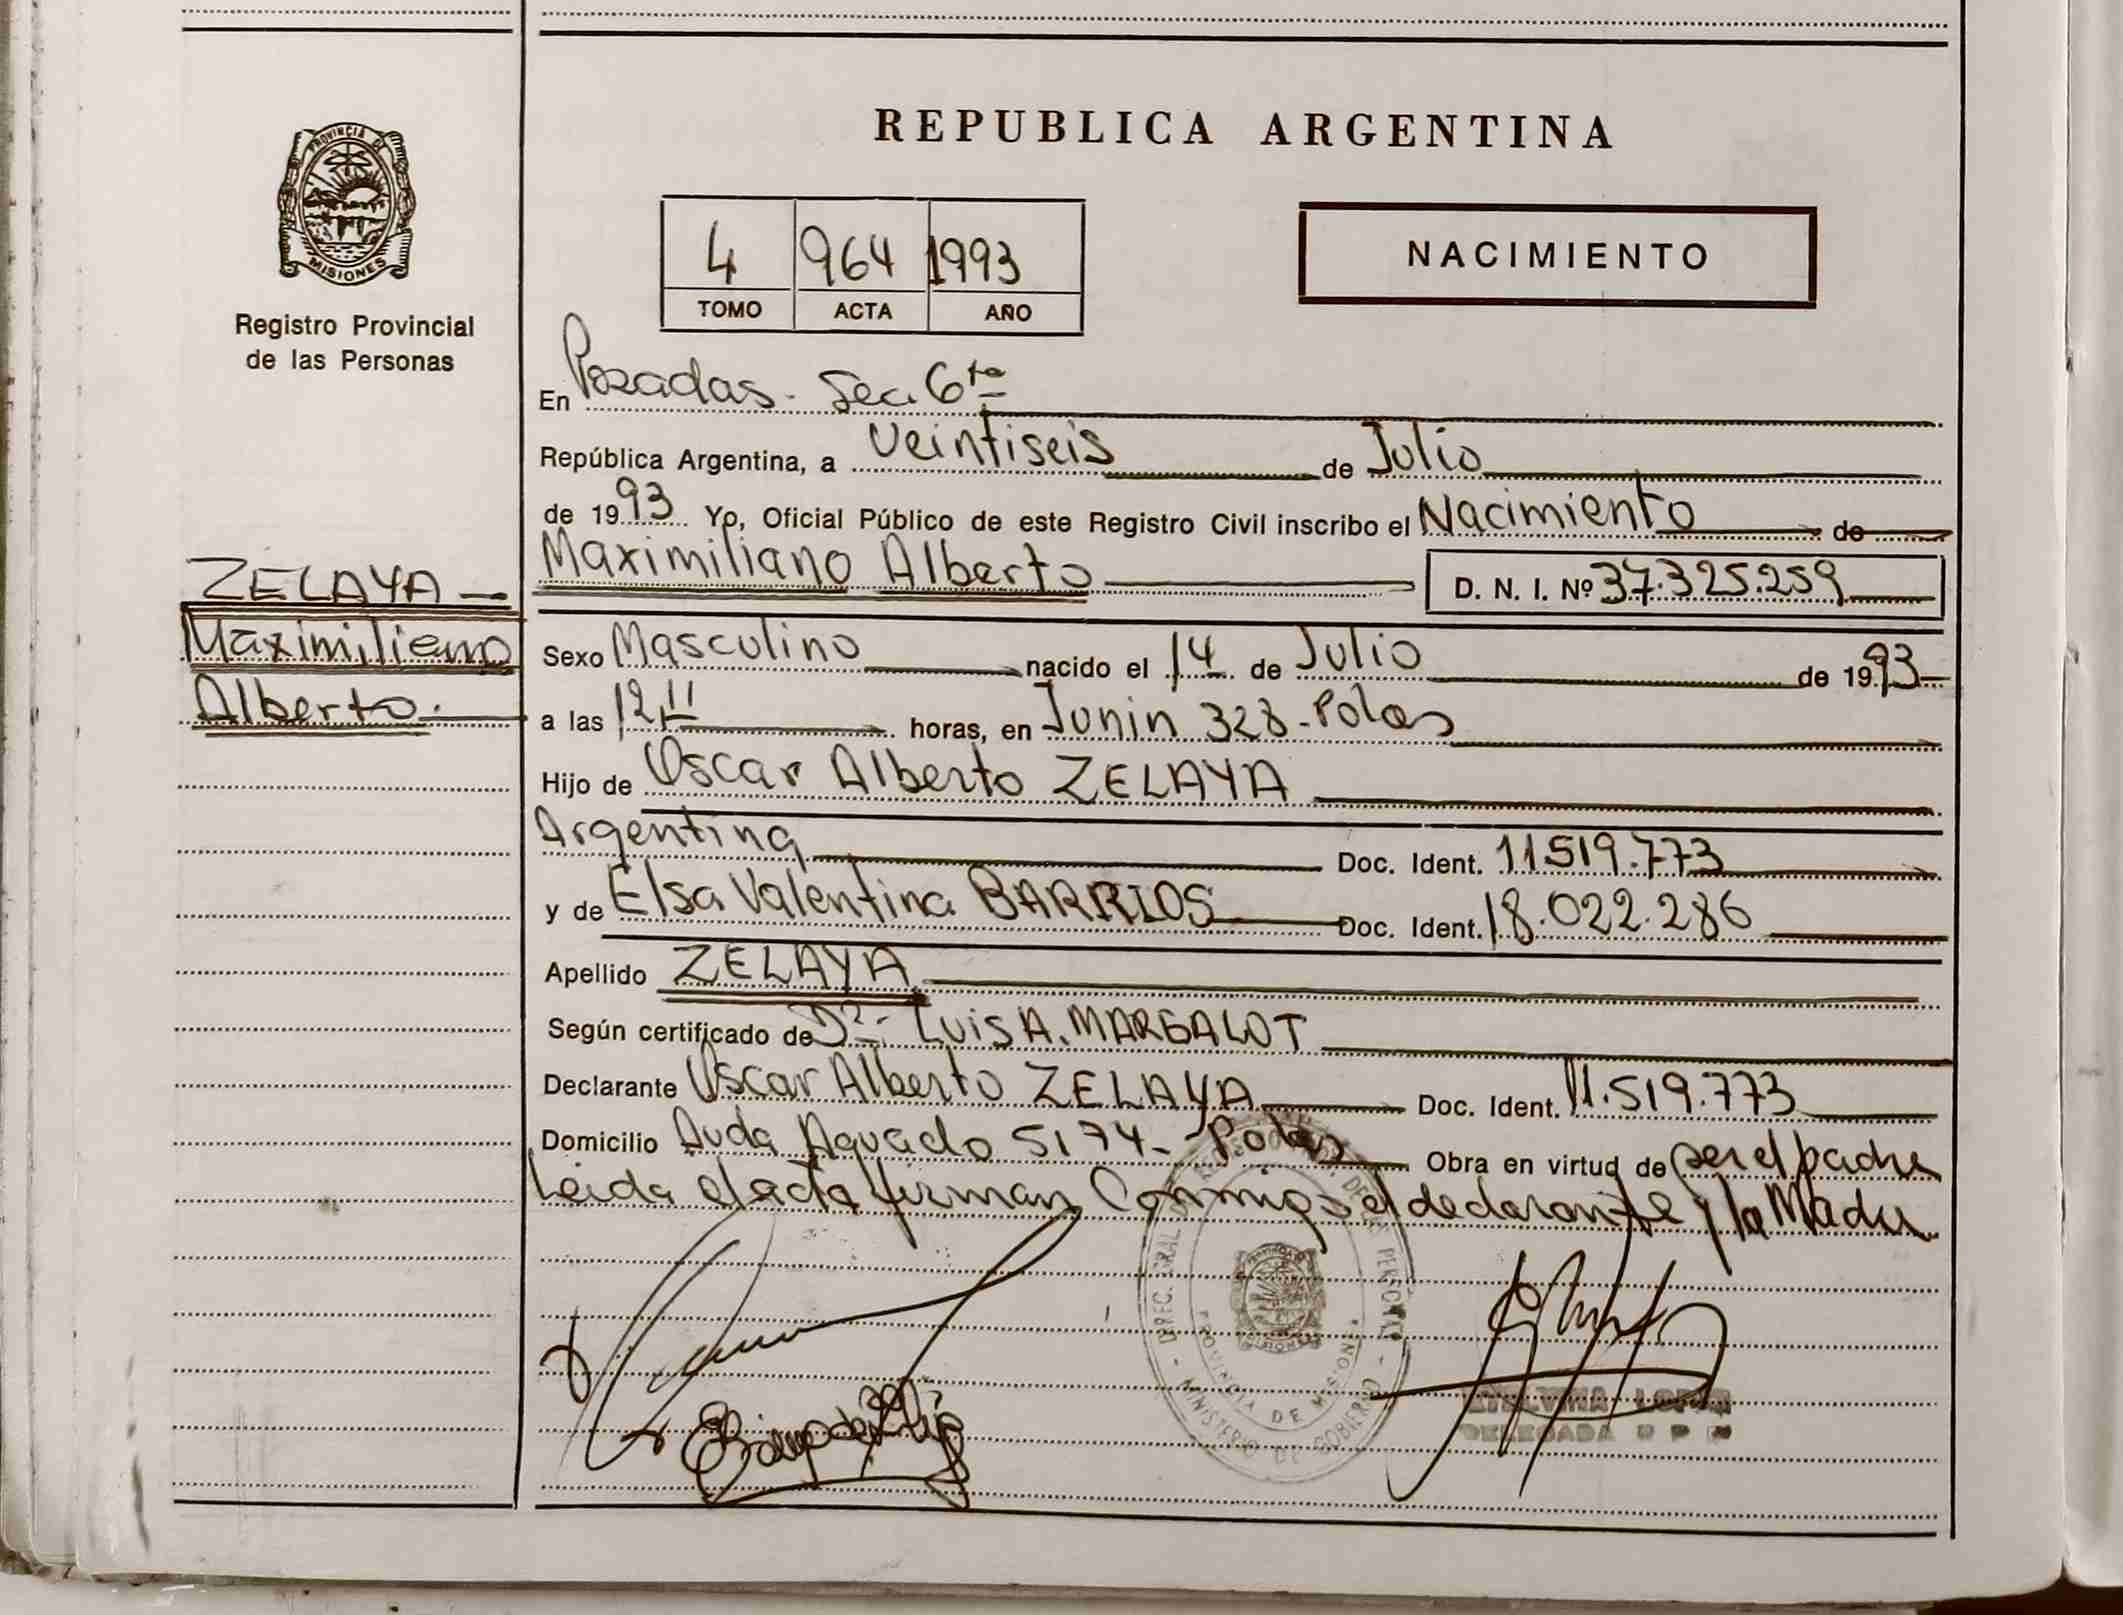 REPUBLICA ARGENTINA
PROVINCIA DE
MISIONES
Registro Provincial
de las Personas
4 964 1993
TOMO ACTA AÑO
NACIMIENTO
En Posadas - Sec. 6ta
República Argentina, a veintiseis de Julio
de 1993 Yo, Oficial Público de este Registro Civil inscribo el Nacimiento de
Maximiliano Alberto D. N. I. Nº 37.325.259
ZELAYA
Maximiliano
Alberto.
Sexo Masculino nacido el 14 de Julio de 1993
a las 12 horas, en Junin 328 - Pdas
Hijo de Oscar Alberto ZELAYA
Argentina Doc. Ident. 11.519.773
y de Elsa Valentina BARRIOS Doc. Ident. 18.022.286
Apellido ZELAYA
Según certificado de Dr. Luis A. MARGALOT
Declarante Oscar Alberto ZELAYA Doc. Ident. 11.519.773
Domicilio Avda Aguado 5174 - Pdas Obra en virtud de ser el padre
Leida el acta firman Conmigo el declarante y la Madre
PROVINCIA DE MISIONES
MINISTERIO DE GOBIERNO
ETELVINA LOPEZ
DELEGADA R P P